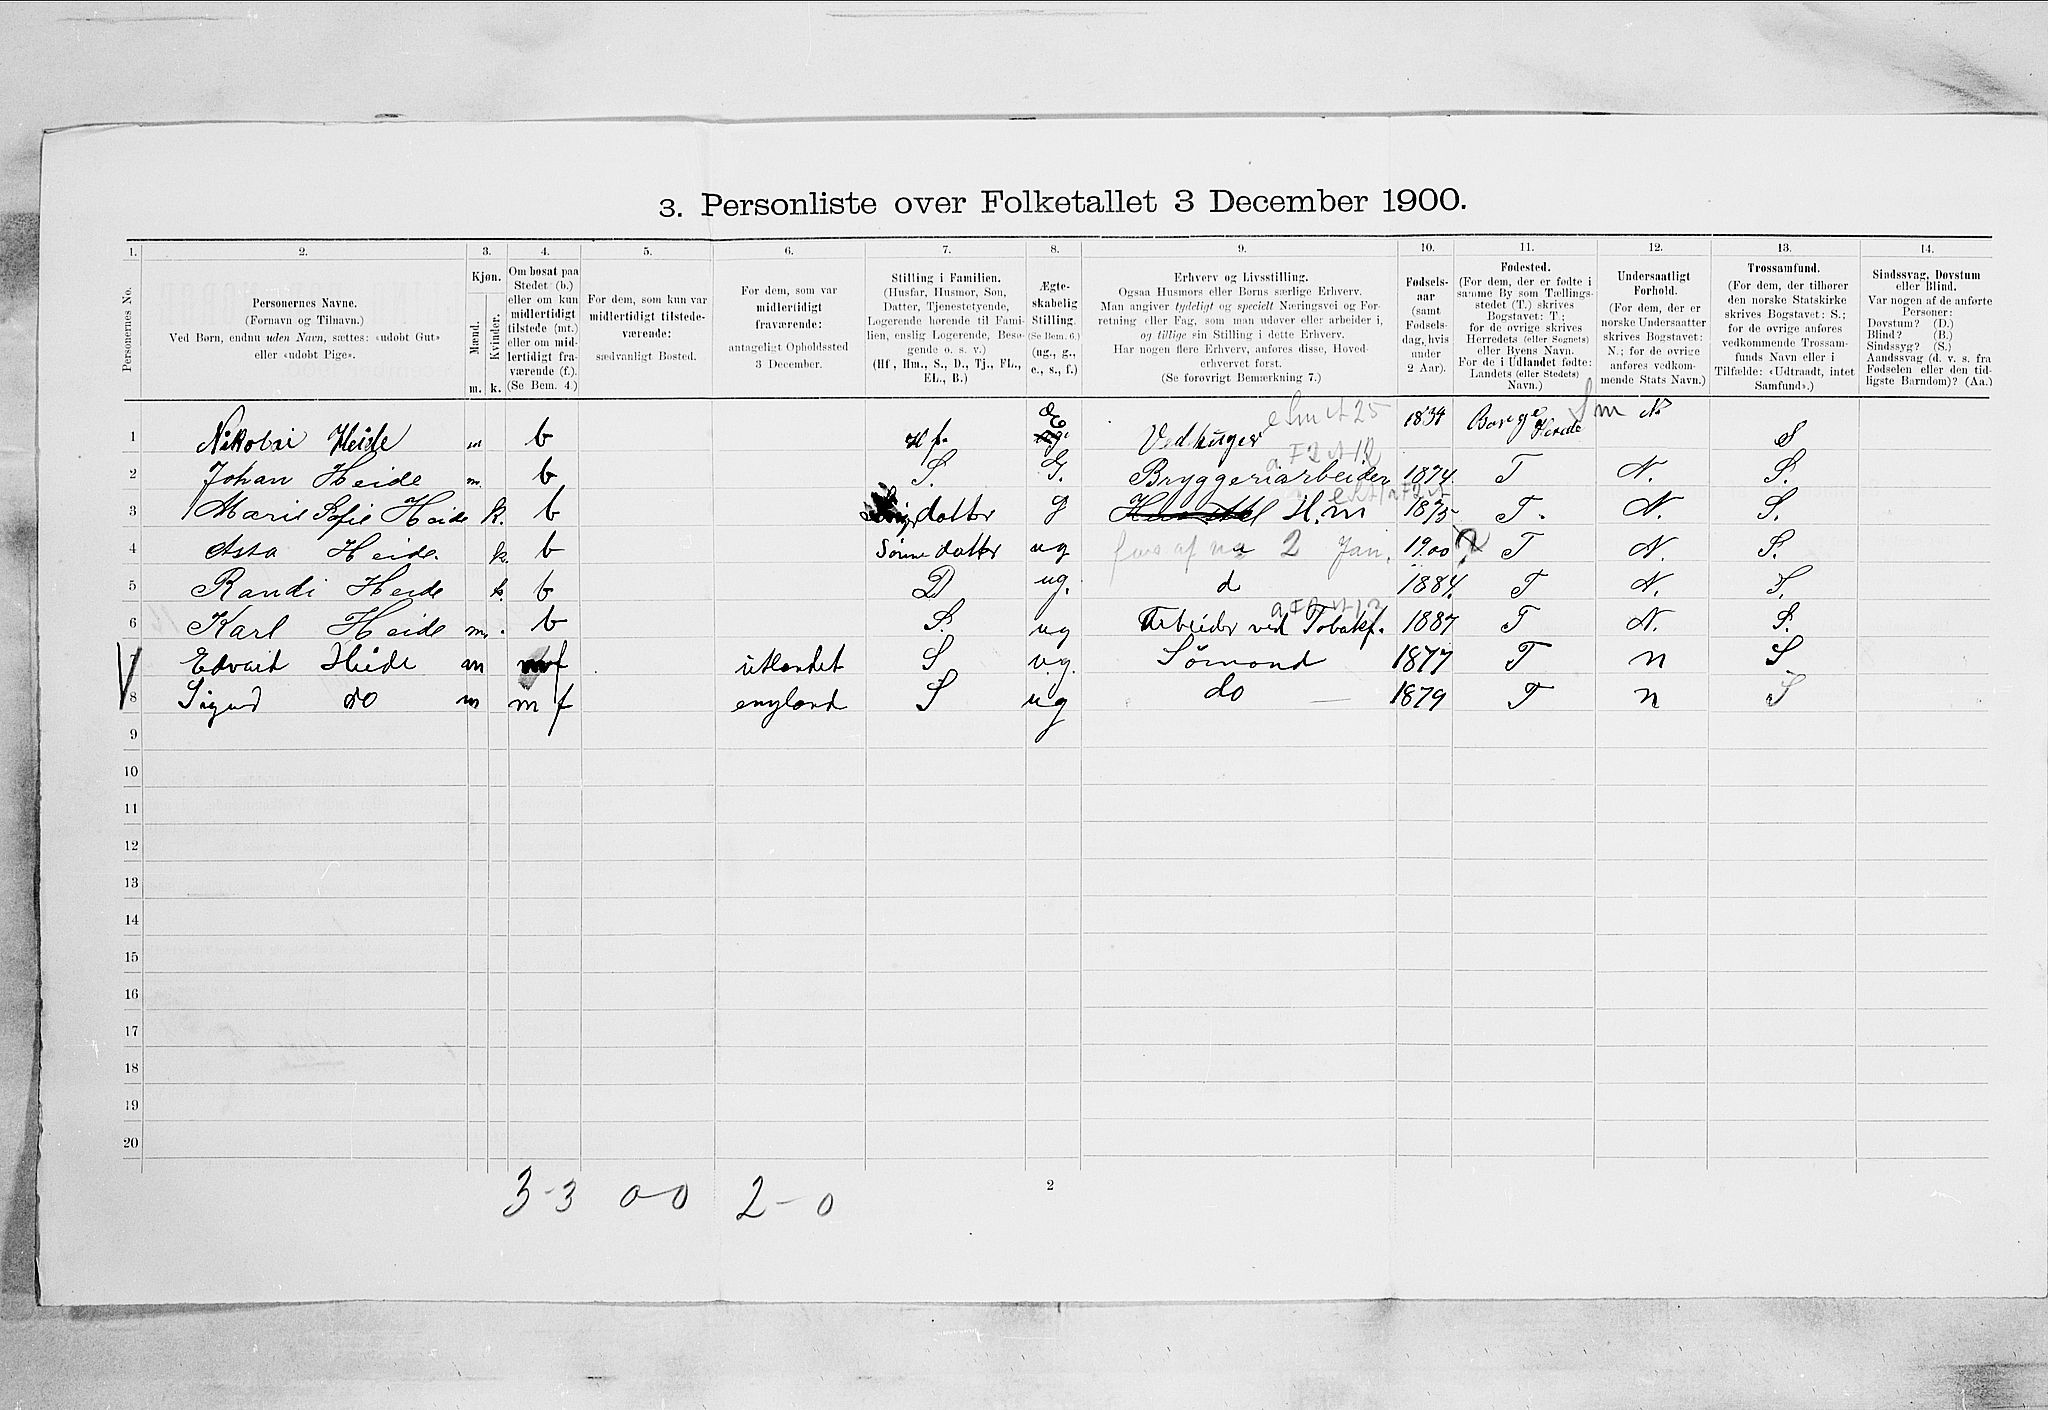 3. Personliste over Folketallet 3 December 1900.
1. 2. 3. 4. 5. 6. 7. 8. 9. 10. 11. 12. 13. 14.
Personernes No.
Personernes Navne.
(Fornavn og Tilnavn.)
Ved Børn, endnu uden Navn, sættes: «udøbt Gut»
eller «udøbt Pige».
Kjøn.
Mænd. Kvinder.
m. k.
Om bosat paa
Stedet (b.)
eller om kun
midlertidigt
tilstede (mt.)
eller om mid-
lertidigt fra-
værende (f.).
(Se Bem. 4.)
For dem, som kun var
midlertidigt tilstede-
værende:
sædvanligt Bosted.
For dem, som var
midlertidigt
fraværende:
antageligt Opholdssted
3 December.
Stilling i Familien.
(Husfar, Husmor, Søn,
Datter, Tjenestetyende,
Logerende hørende til Fami-
lien, enslig Logerende, Besø-
gende o. s. v.)
(Hf., Hm., S., D., Tj., FL.,
EL., B.)
Ægte-
skabelig
Stilling.
(Se Bem. 6.)
(ug., g.,
e., s., f.)
Erhverv og Livsstilling.
Ogsaa Husmors eller Børns særlige Erhverv.
Man angiver tydeligt og specielt Næringsvei og For-
retning eller Fag, som man udøver eller arbeider i,
og tillige sin Stilling i dette Erhverv.
Har nogen flere Erhverv, anføres disse, Hoved-
erhvervet først.
(Se forøvrigt Bemærkning 7.)
Fødsels-
aar
(samt
Fødsels-
dag, hvis
under
2 Aar).
Fødested.
(For dem, der er fødte i
samme By som Tællings-
stedet (T.) skrives
Bogstavet: T.;
for de øvrige skrives
Herredets (eller Sognets)
eller Byens Navn.
For de i Udlandet fødte:
Landets (eller Stedets)
Navn.)
Undersaatligt
Forhold.
(For dem, der er
norske Undersaatter
skrives Bogstavet:
N.; for de øvrige
anføres vedkom-
mende Stats Navn.)
Trossamfund.
(For dem, der tilhører
den norske Statskirke
skrives Bogstavet: S.;
for de øvrige anføres
vedkommende Trossam-
funds Navn eller i
Tilfælde: «Udtraadt, intet
Samfund».)
Sindssvag, Døvstum
eller Blind.
Var nogen af de anførte
Personer:
Døvstum? (D.)
Blind? (B.)
Sindssyg? (S.)
Aandssvag (d. v. s. fra
Fødselen eller den tid-
ligste Barndom)? (Aa.)
1 Nikolai Heide m b Hf. E Vedhuger 1834 Borge Herede N S
2 Johan Heide m. b S. G. Bryggeriarbeider 1874 T N. S.
3 Marie Sofie Heide k. b datter g H.m 1875 T. N. S.
4 Asta Heide. k. b Sønnedatter ug 2 Jan. 1900 ? T N. S.
5 Randi Heide k. b D ug. d 1884. T N. S.
6 Karl Heide m. b S. ug Arbeider ved Tobakf. 1887 T N. S.
7 Edvart Heide m mf utlandet S u.g. Sömand 1877 T n S
8 Sigurd do m m f england S ug do 1879 T n S
9
10
11
12
13
14
15
16
17
18
19
20
3-3 0-0 2-0
2